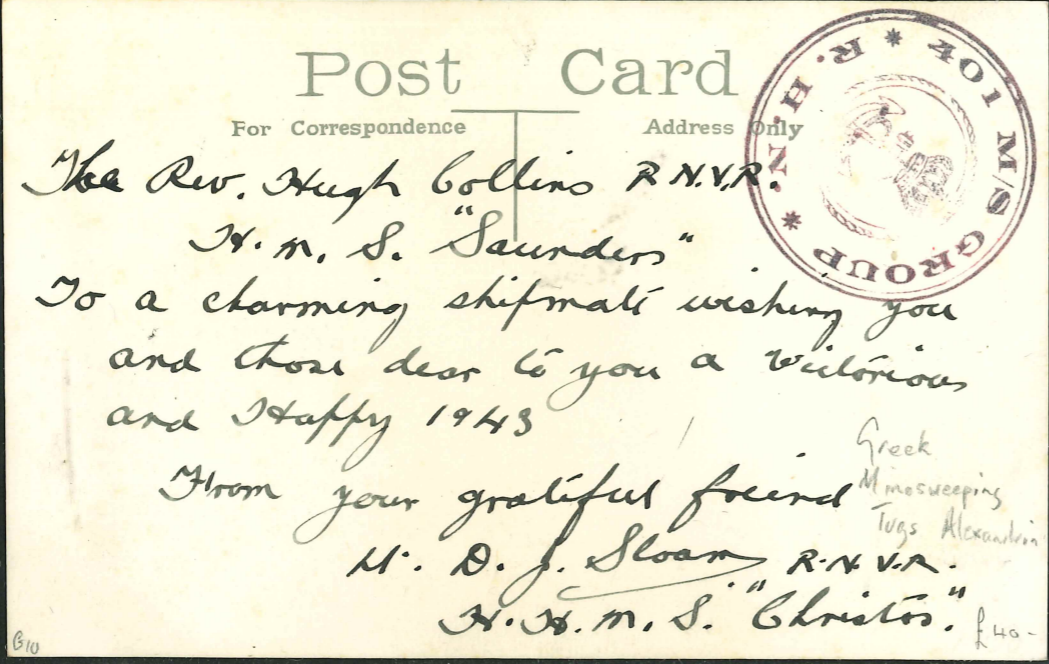 Post Card
For Correspondence Address Only
R.H.N. * 104 M/S GROUP *
The Rev. Hugh Collins R.N.V.R.
H.M.S. "Saunders"
To a charming shipmate wishing you
and those dear to you a Victorious
and Happy 1943
From your grateful friend
Lt. D. J. Sloan R.N.V.R.
H.H.M.S. "Christos".
Greek
Minesweeping
Tugs Alexandria
£40-
G10